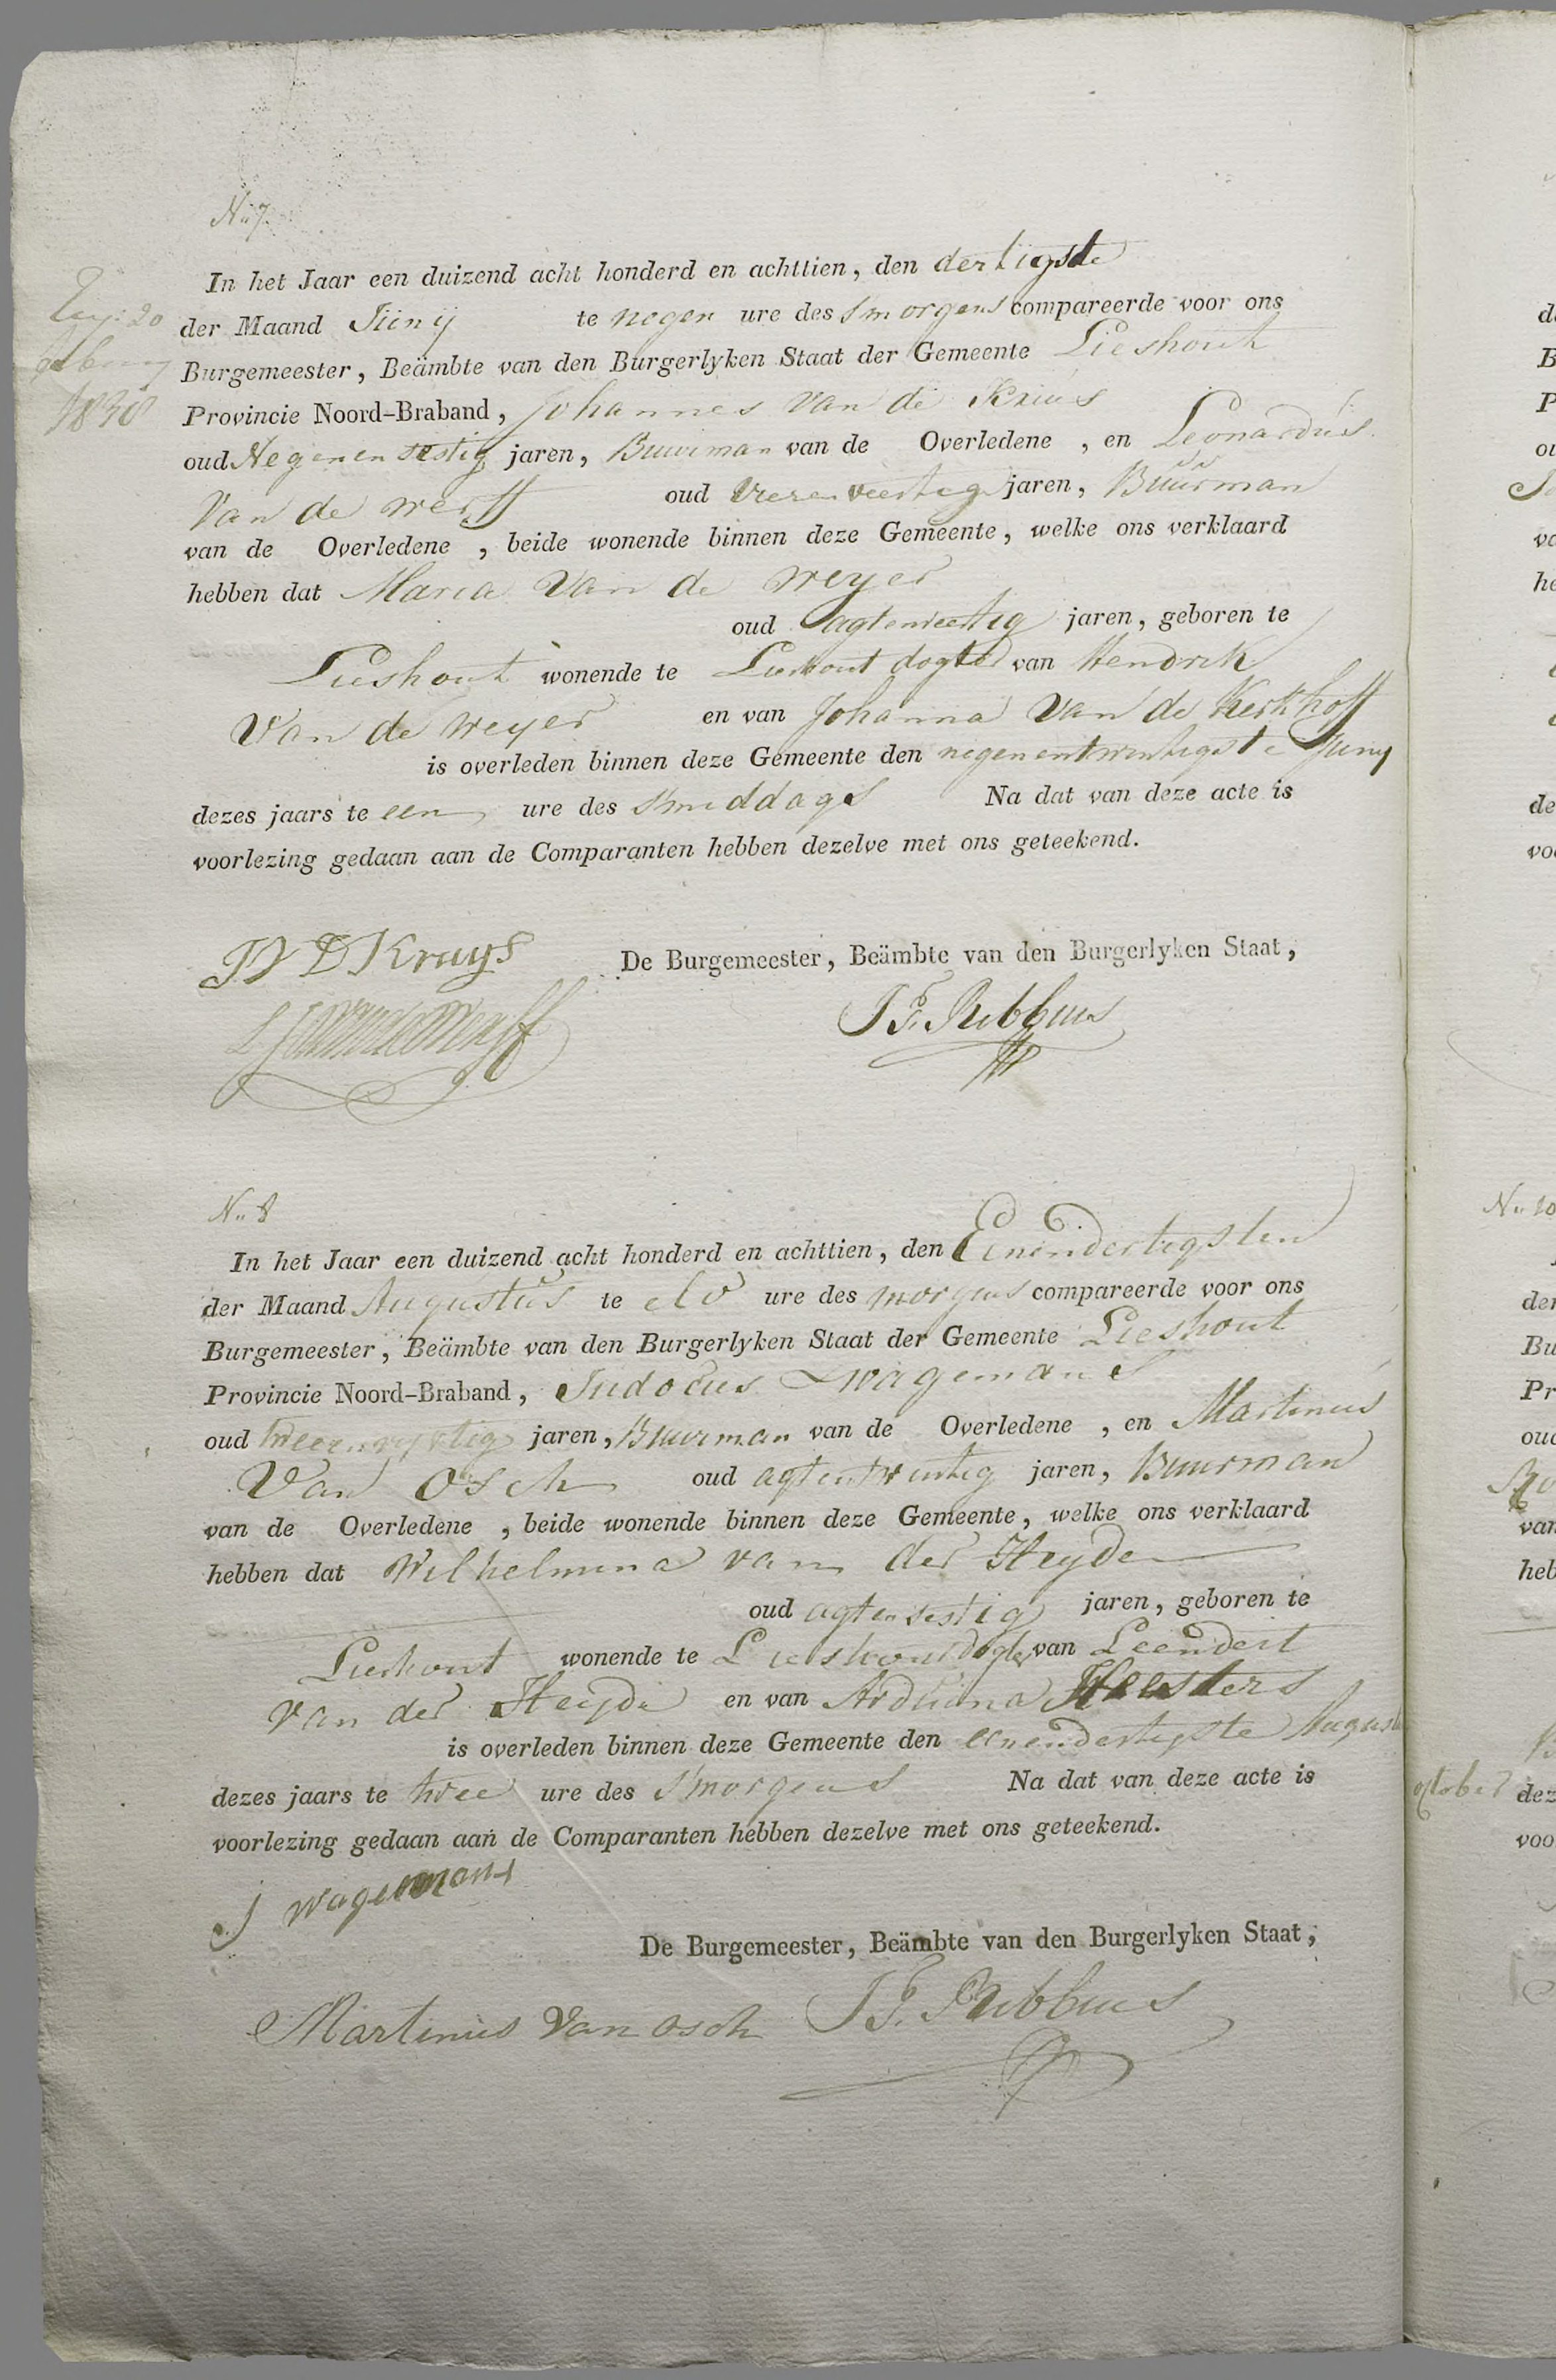 N. 7.
In het Jaar een duizend acht honderd en achttien, den dertigste
der Maand Juny te negen ure des smorgens compareerde voor ons
Burgemeester, Beämbte van den Burgerlyken Staat der Gemeente Lieshout
Provincie Noord-Braband, Johannes Van de Kruis
oud Negenensestig jaren, Buurman van de Overledene, en Leonardus
Van de werff oud jaren, Buurman
van de Overledene, beide wonende binnen deze Gemeente, welke ons verklaard
hebben dat Maria Van de Weyer
oud agtenveertig jaren, geboren te
Lieshout wonende te Lieshout dogter van Hendrik
Van de Weyer en van Johanna Van de Kerkhoff
is overleden binnen deze Gemeente den negenentwintigste Juny
dezes jaars te een ure des smiddags Na dat van deze acte is
voorlezing gedaan aan de Comparanten hebben dezelve met ons geteekend.
1830
JV D Kruys
De Burgemeester, Beämbte van den Burgerlyken Staat,
N. 8
In het Jaar een duizend acht honderd en achttien, den Eenendertigsten
der Maand Augustus te elv ure des morgens compareerde voor ons
Burgemeester, Beämbte van den Burgerlyken Staat der Gemeente Lieshout
Provincie Noord-Braband, Judocus Wagemans
oud tweenvyvtig jaren, Buurman van de Overledene, en Martinus
Van Osch oud agtentwintig jaren, Buurman
van de Overledene, beide wonende binnen deze Gemeente, welke ons verklaard
hebben dat Wilhelmina van der Heyde
oud agtensestig jaren, geboren te
Lieshout wonende te Lieshout dogter van Leendert
van der Heyde en van Ardiena Heesters
is overleden binnen deze Gemeente den eenendertigste August
dezes jaars te twee ure des smorgens Na dat van deze acte is
voorlezing gedaan aan de Comparanten hebben dezelve met ons geteekend.
J Wagemans
De Burgemeester, Beämbte van den Burgerlyken Staat,
Martinus Van Osch
N. 10
october